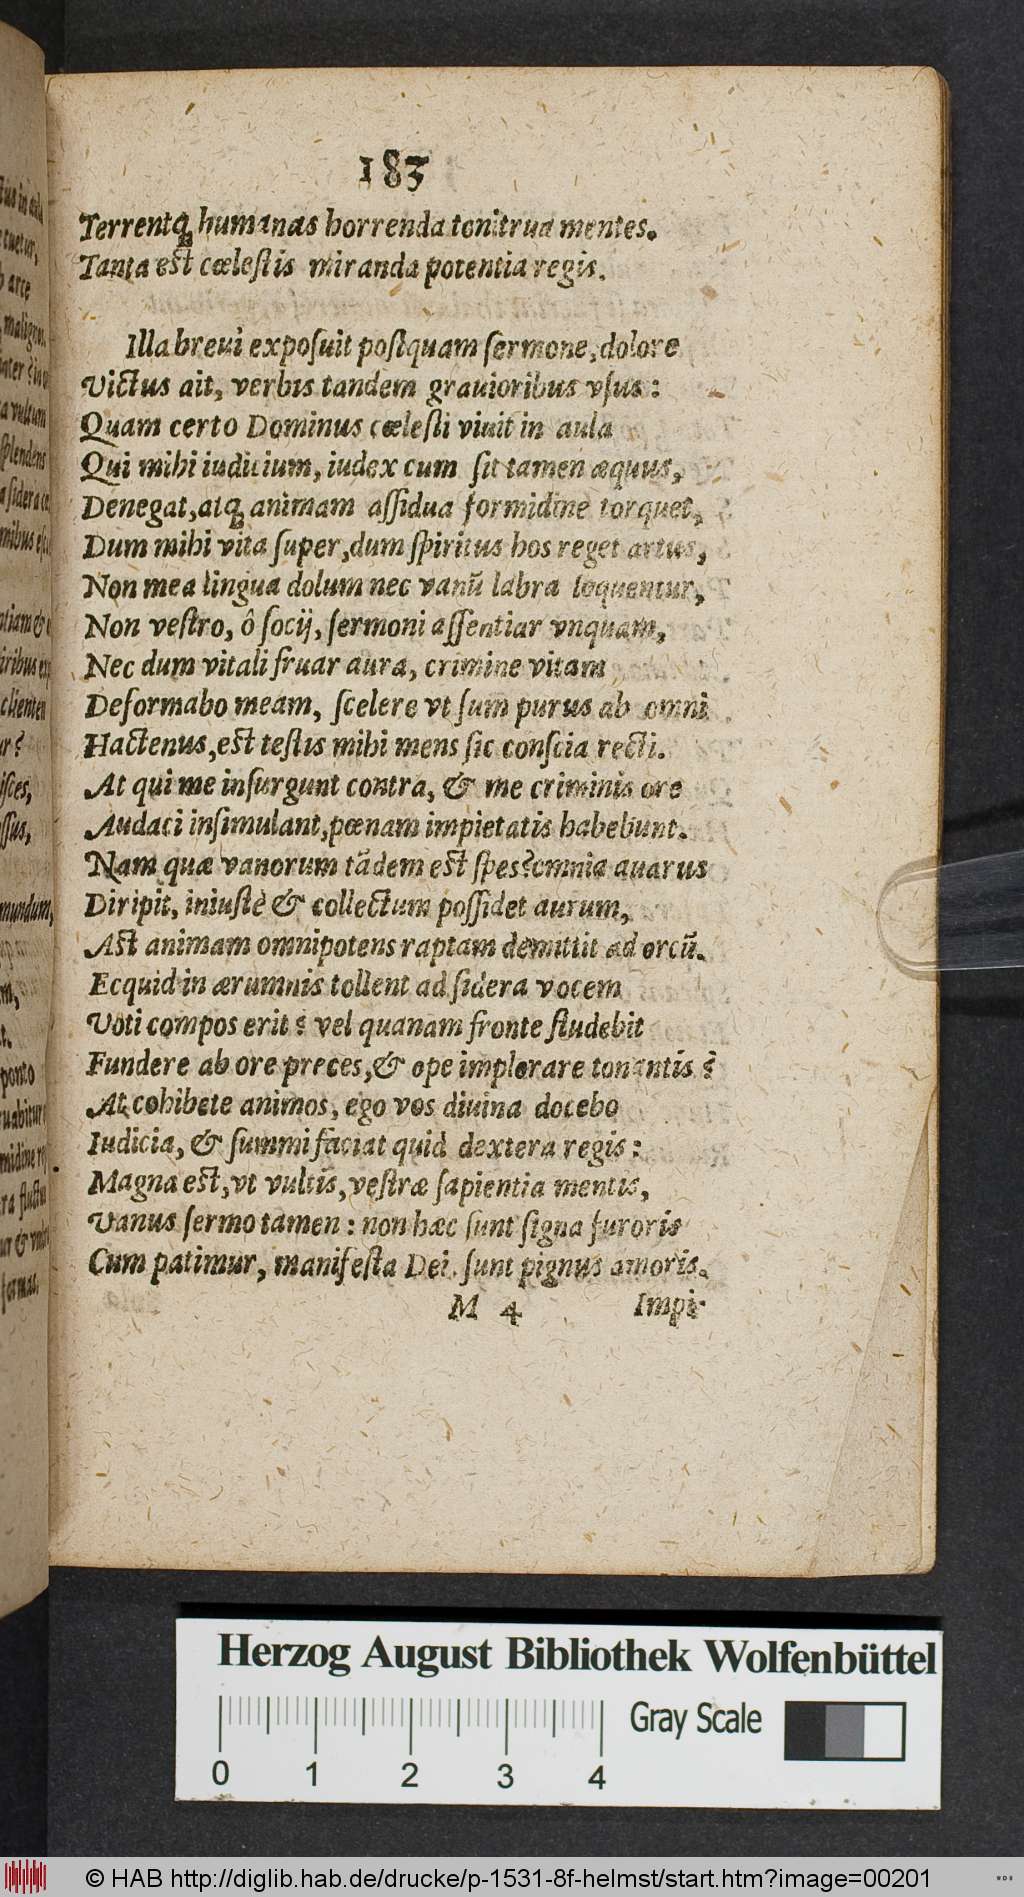 183
Terrentq; humanas horrenda tonitrua mentes.
Tanta est cœlestis miranda potentia regis.
Illa breui exposuit postquam sermone, dolore
Victus ait, verbis tandem grauioribus vsus:
Quam certo Dominus cœlesti viuit in aula
Qui mihi iudicium, iudex cum sit tamen æquus,
Denegat, atq; animam assidua formidine torquet,
Dum mihi vita super, dum spiritus hos reget artus,
Non mea lingua dolum nec vanū labra loquentur,
Non vestro, ô socij, sermoni assentiar vnquam,
Nec dum vitali fruar aura, crimine vitam
Deformabo meam, scelere vt sum purus ab omni
Hactenus, est testis mihi mens sic conscia recti.
At qui me insurgunt contra, & me criminis ore
Audaci insimulant, pœnam impietatis habebunt.
Nam quæ vanorum tādem est spes? omnia auarus
Diripit, iniustè & collectum possidet aurum,
Ast animam omnipotens raptam demittit ad orcū.
Ecquid in ærumnis tollent ad sidera vocem
Voti compos erit? vel quanam fronte studebit
Fundere ab ore preces, & ope implorare tonantis?
At cohibete animos, ego vos diuina docebo
Iudicia, & summi faciat quid dextera regis:
Magna est, vt vultis, vestræ sapientia mentis,
Vanus sermo tamen: non hæc sunt signa furoris
Cum patimur, manifesta Dei sunt pignus amoris.
M 4 Impi-
Herzog August Bibliothek Wolfenbüttel
Gray Scale
0 1 2 3 4
© HAB http://diglib.hab.de/drucke/p-1531-8f-helmst/start.htm?image=00201